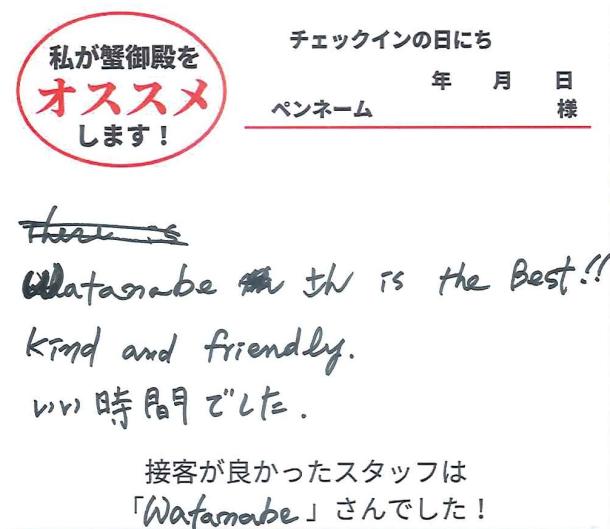 私が蟹御殿を
オススメ
します！
チェックインの日にち
年 月 日
ペンネーム 様
There is
Watanabe さん is the Best!!
kind and friendly.
いい時間でした.
接客が良かったスタッフは
「Watanabe」さんでした！